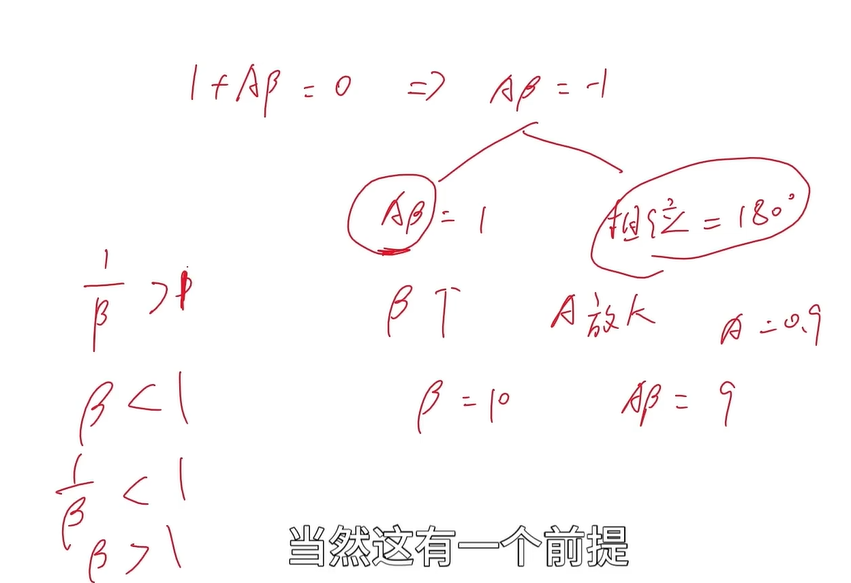 1+Aβ=0 ⇒ Aβ=-1
Aβ=1 相位=180°
1/β>1
β↑ A放大 A=0.9
β<1 β=10 Aβ=9
1/β<1
β>1
当然这有一个前提